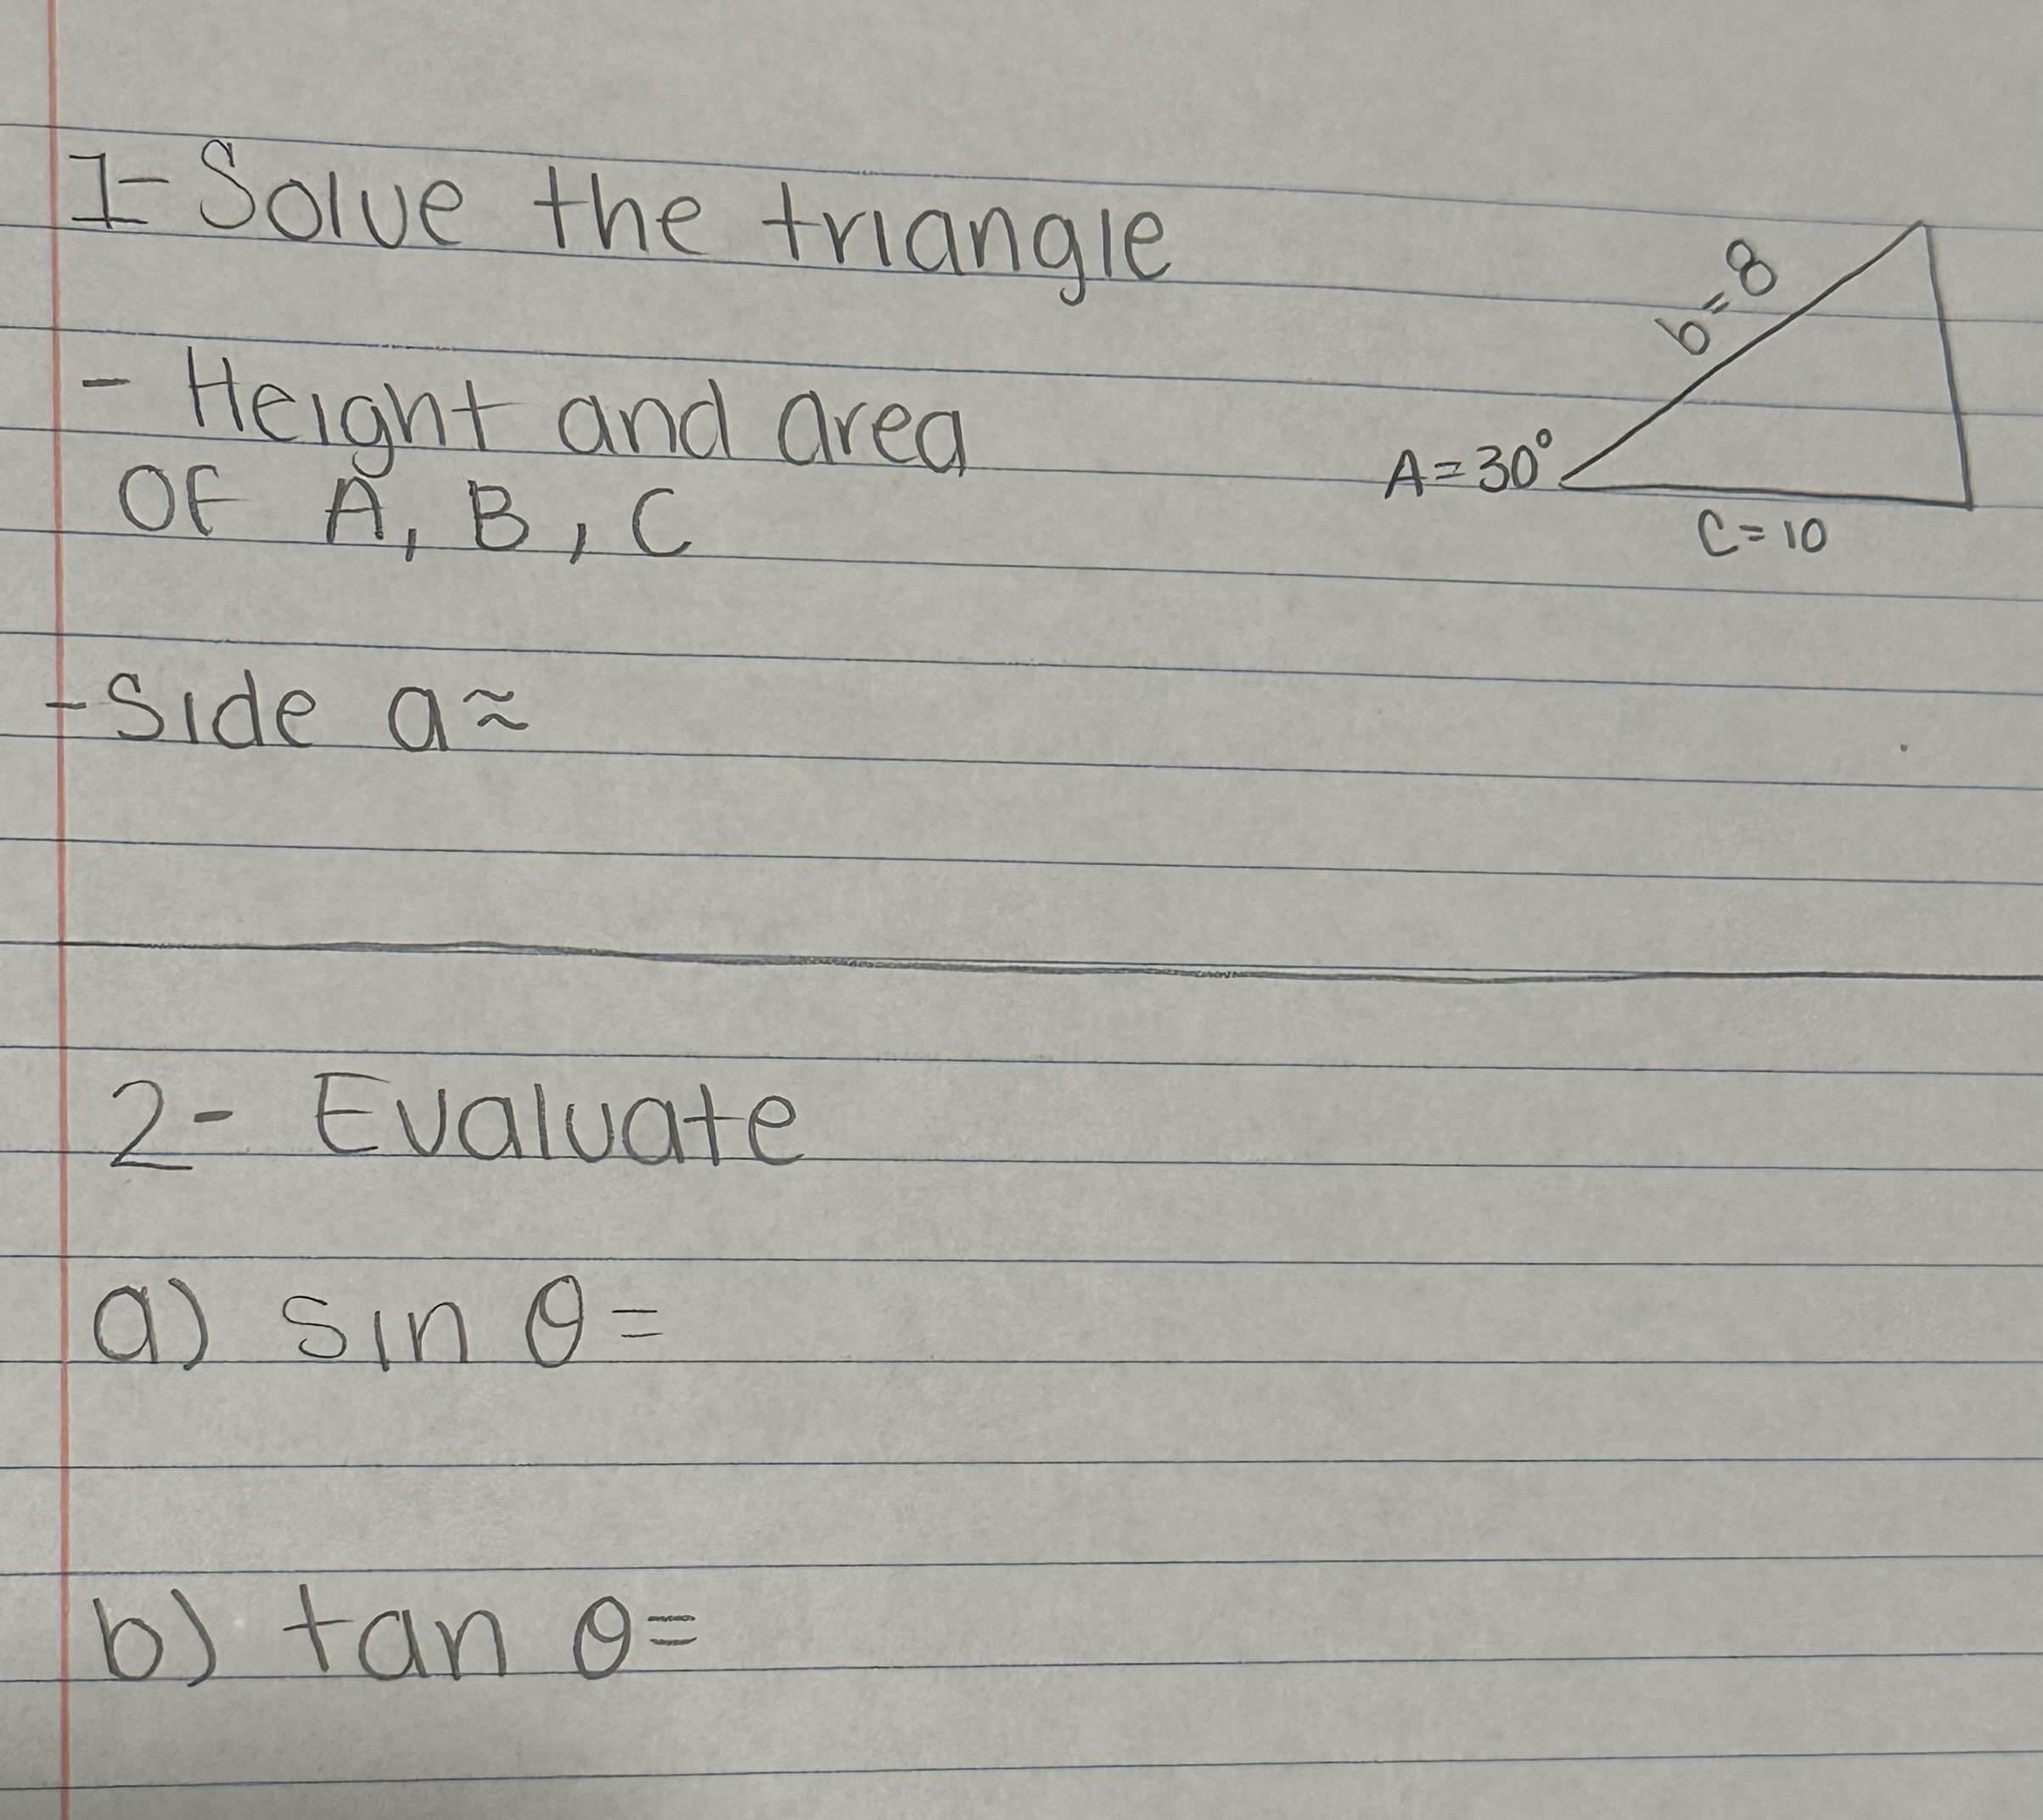 1- Solve the triangle
b=8
- Height and area
A=30°
OF A, B, C
C=10
-Side a≈
2- Evaluate
a) sin θ=
b) tan θ=